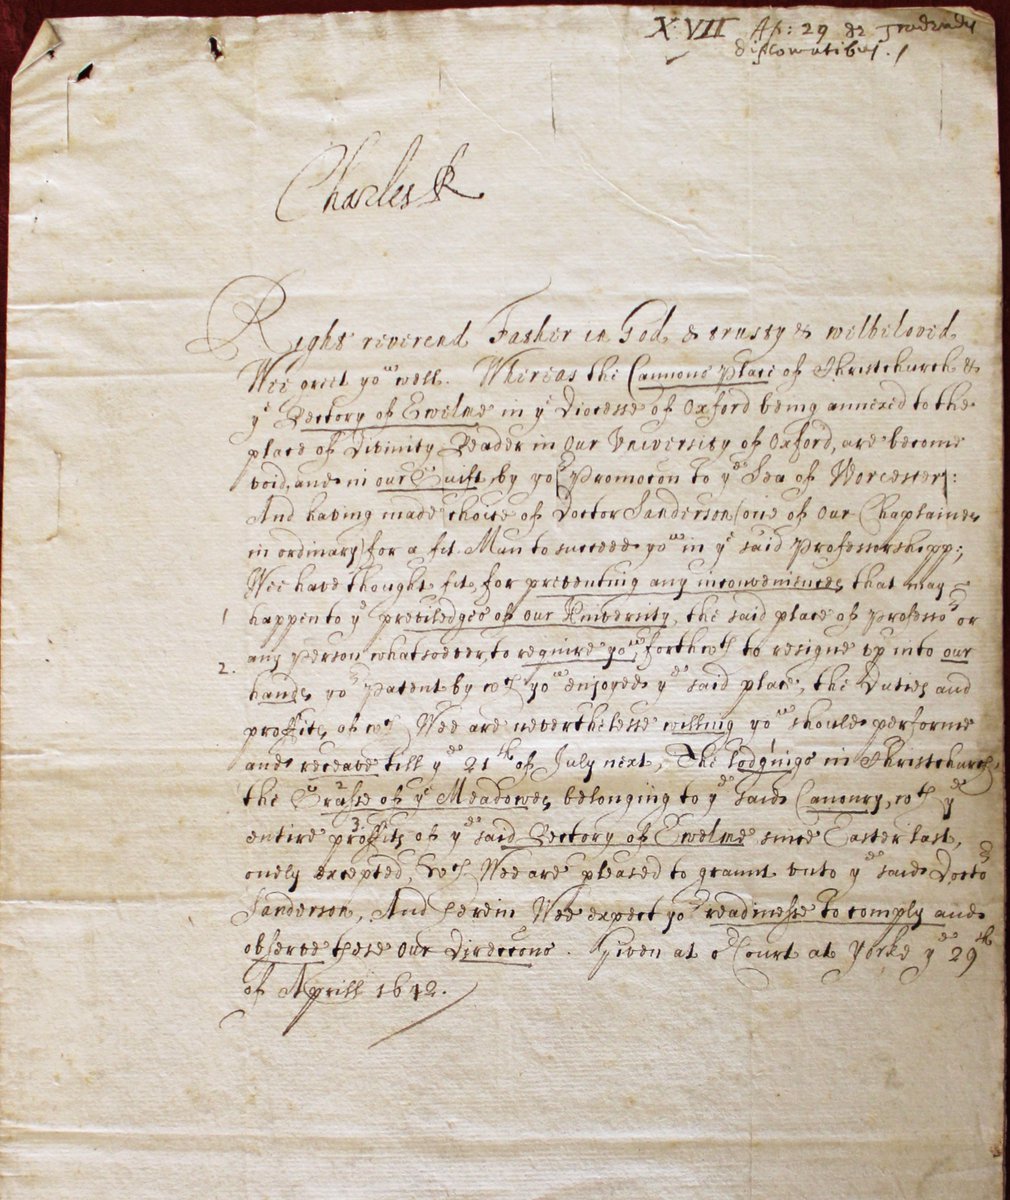 X: VII Ap: 29 de tradendis
diplomatibus.
Charles R
Right reverend Father in God & trusty & welbeloved
Wee greet yoᵘ well. Whereas the Cannons Place of Christchurch &
yᵉ Rectory of Ewelme in yᵉ Diocesse of Oxford being annexed to the
place of Divinity Reader in Our University of Oxford, are become
void, and in our Guift, by yoʳ Promocon to yᵉ Sea of Worcester:
And having made choice of Doctor Sanderson (one of Our Chaplaines
in ordinary) for a fit Man to succeed yoᵘ in yᵉ said Professorshipp;
Wee have thought fit, for preventing any inconveniences that may
1 happen to yᵉ priviledges of our University, the said place of Professoʳ or
any Person whatsoever, to require yoᵘ, forthwᵗʰ to resigne up into our
2. hands yoʳ Patent by wᶜʰ yoᵘ enjoyed yᵉ said place, the Duties and
proffits of wᶜʰ Wee are neverthelesse willing yoᵘ should performe
and receave till yᵉ 21ᵗʰ of July next, The lodgings in Christchurch,
the Grasse of yᵉ Meadowes belonging to yᵉ said Canonry, wᵗʰ yᵉ
entire proffits of yᵉ said Rectory of Ewelme since Easter last,
3
onely excepted, wᶜʰ Wee are pleased to graunt unto yᵉ said Doctoʳ
Sanderson, And herein Wee expect yoʳ readinesse to comply and
observe these Our Direccons. Given at oʳ Court at Yorke yᵉ 29ᵗʰ
of Aprill 1642.